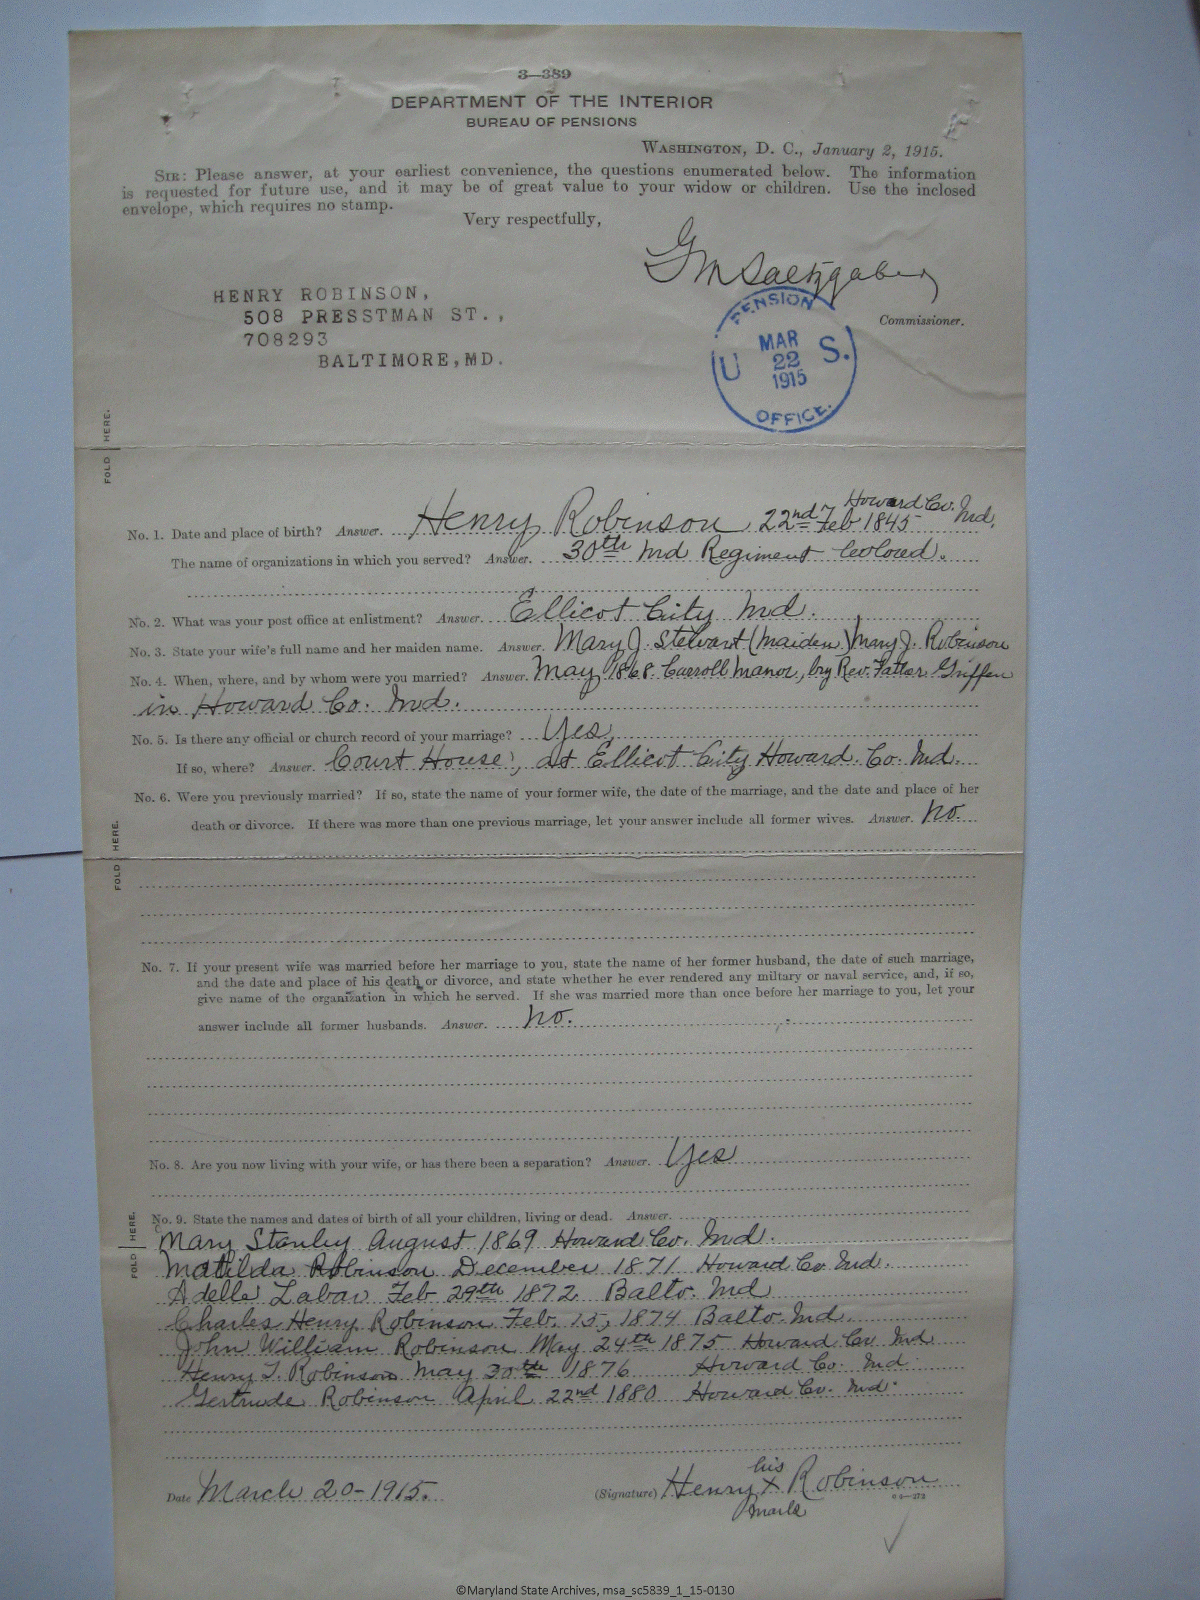 3—389
DEPARTMENT OF THE INTERIOR
BUREAU OF PENSIONS
WASHINGTON, D. C., January 2, 1915.
SIR: Please answer, at your earliest convenience, the questions enumerated below. The information
is requested for future use, and it may be of great value to your widow or children. Use the inclosed
envelope, which requires no stamp.
Very respectfully,
G M Saltzgaber
Commissioner.
HENRY ROBINSON,
508 PRESSTMAN ST.,
708293
BALTIMORE, MD.
PENSION
U MAR S.
22
1915
OFFICE.
FOLD HERE.
No. 1. Date and place of birth? Answer. Henry Robinson 22nd Feb 1845 Howard Co. Md.
The name of organizations in which you served? Answer. 30th Md Regiment Colored.
No. 2. What was your post office at enlistment? Answer. Ellicot City Md.
No. 3. State your wife's full name and her maiden name. Answer. Mary J. Stewart (maiden) Mary J. Robinson
No. 4. When, where, and by whom were you married? Answer. May 1868. Carroll Manor, by Rev. Father Griffen
in Howard Co. Md.
No. 5. Is there any official or church record of your marriage? Yes,
If so, where? Answer. Court House, at Ellicot City Howard. Co. Md.
No. 6. Were you previously married? If so, state the name of your former wife, the date of the marriage, and the date and place of her
death or divorce. If there was more than one previous marriage, let your answer include all former wives. Answer. No.
FOLD HERE.
No. 7. If your present wife was married before her marriage to you, state the name of her former husband, the date of such marriage,
and the date and place of his death or divorce, and state whether he ever rendered any miltary or naval service, and, if so,
give name of the organization in which he served. If she was married more than once before her marriage to you, let your
answer include all former husbands. Answer. No.
No. 8. Are you now living with your wife, or has there been a separation? Answer. Yes
FOLD HERE.
No. 9. State the names and dates of birth of all your children, living or dead. Answer.
Mary Stanley August 1869 Howard Co. Md.
Matilda Robinson December 1871 Howard Co. Md.
Adelle Labar Feb 29th 1872 Balto. Md
Charles Henry Robinson Feb. 15, 1874 Balto. Md.
John William Robinson May 24th 1875 Howard Co Md
Henry T. Robinson May 30th 1876 Howard Co. Md.
Gertrude Robinson April 22nd 1880 Howard Co. Md.
Date March 20-1915.
(Signature) Henry his x mark Robinson
6—273
©Maryland State Archives, msa_sc5839_1_15-0130